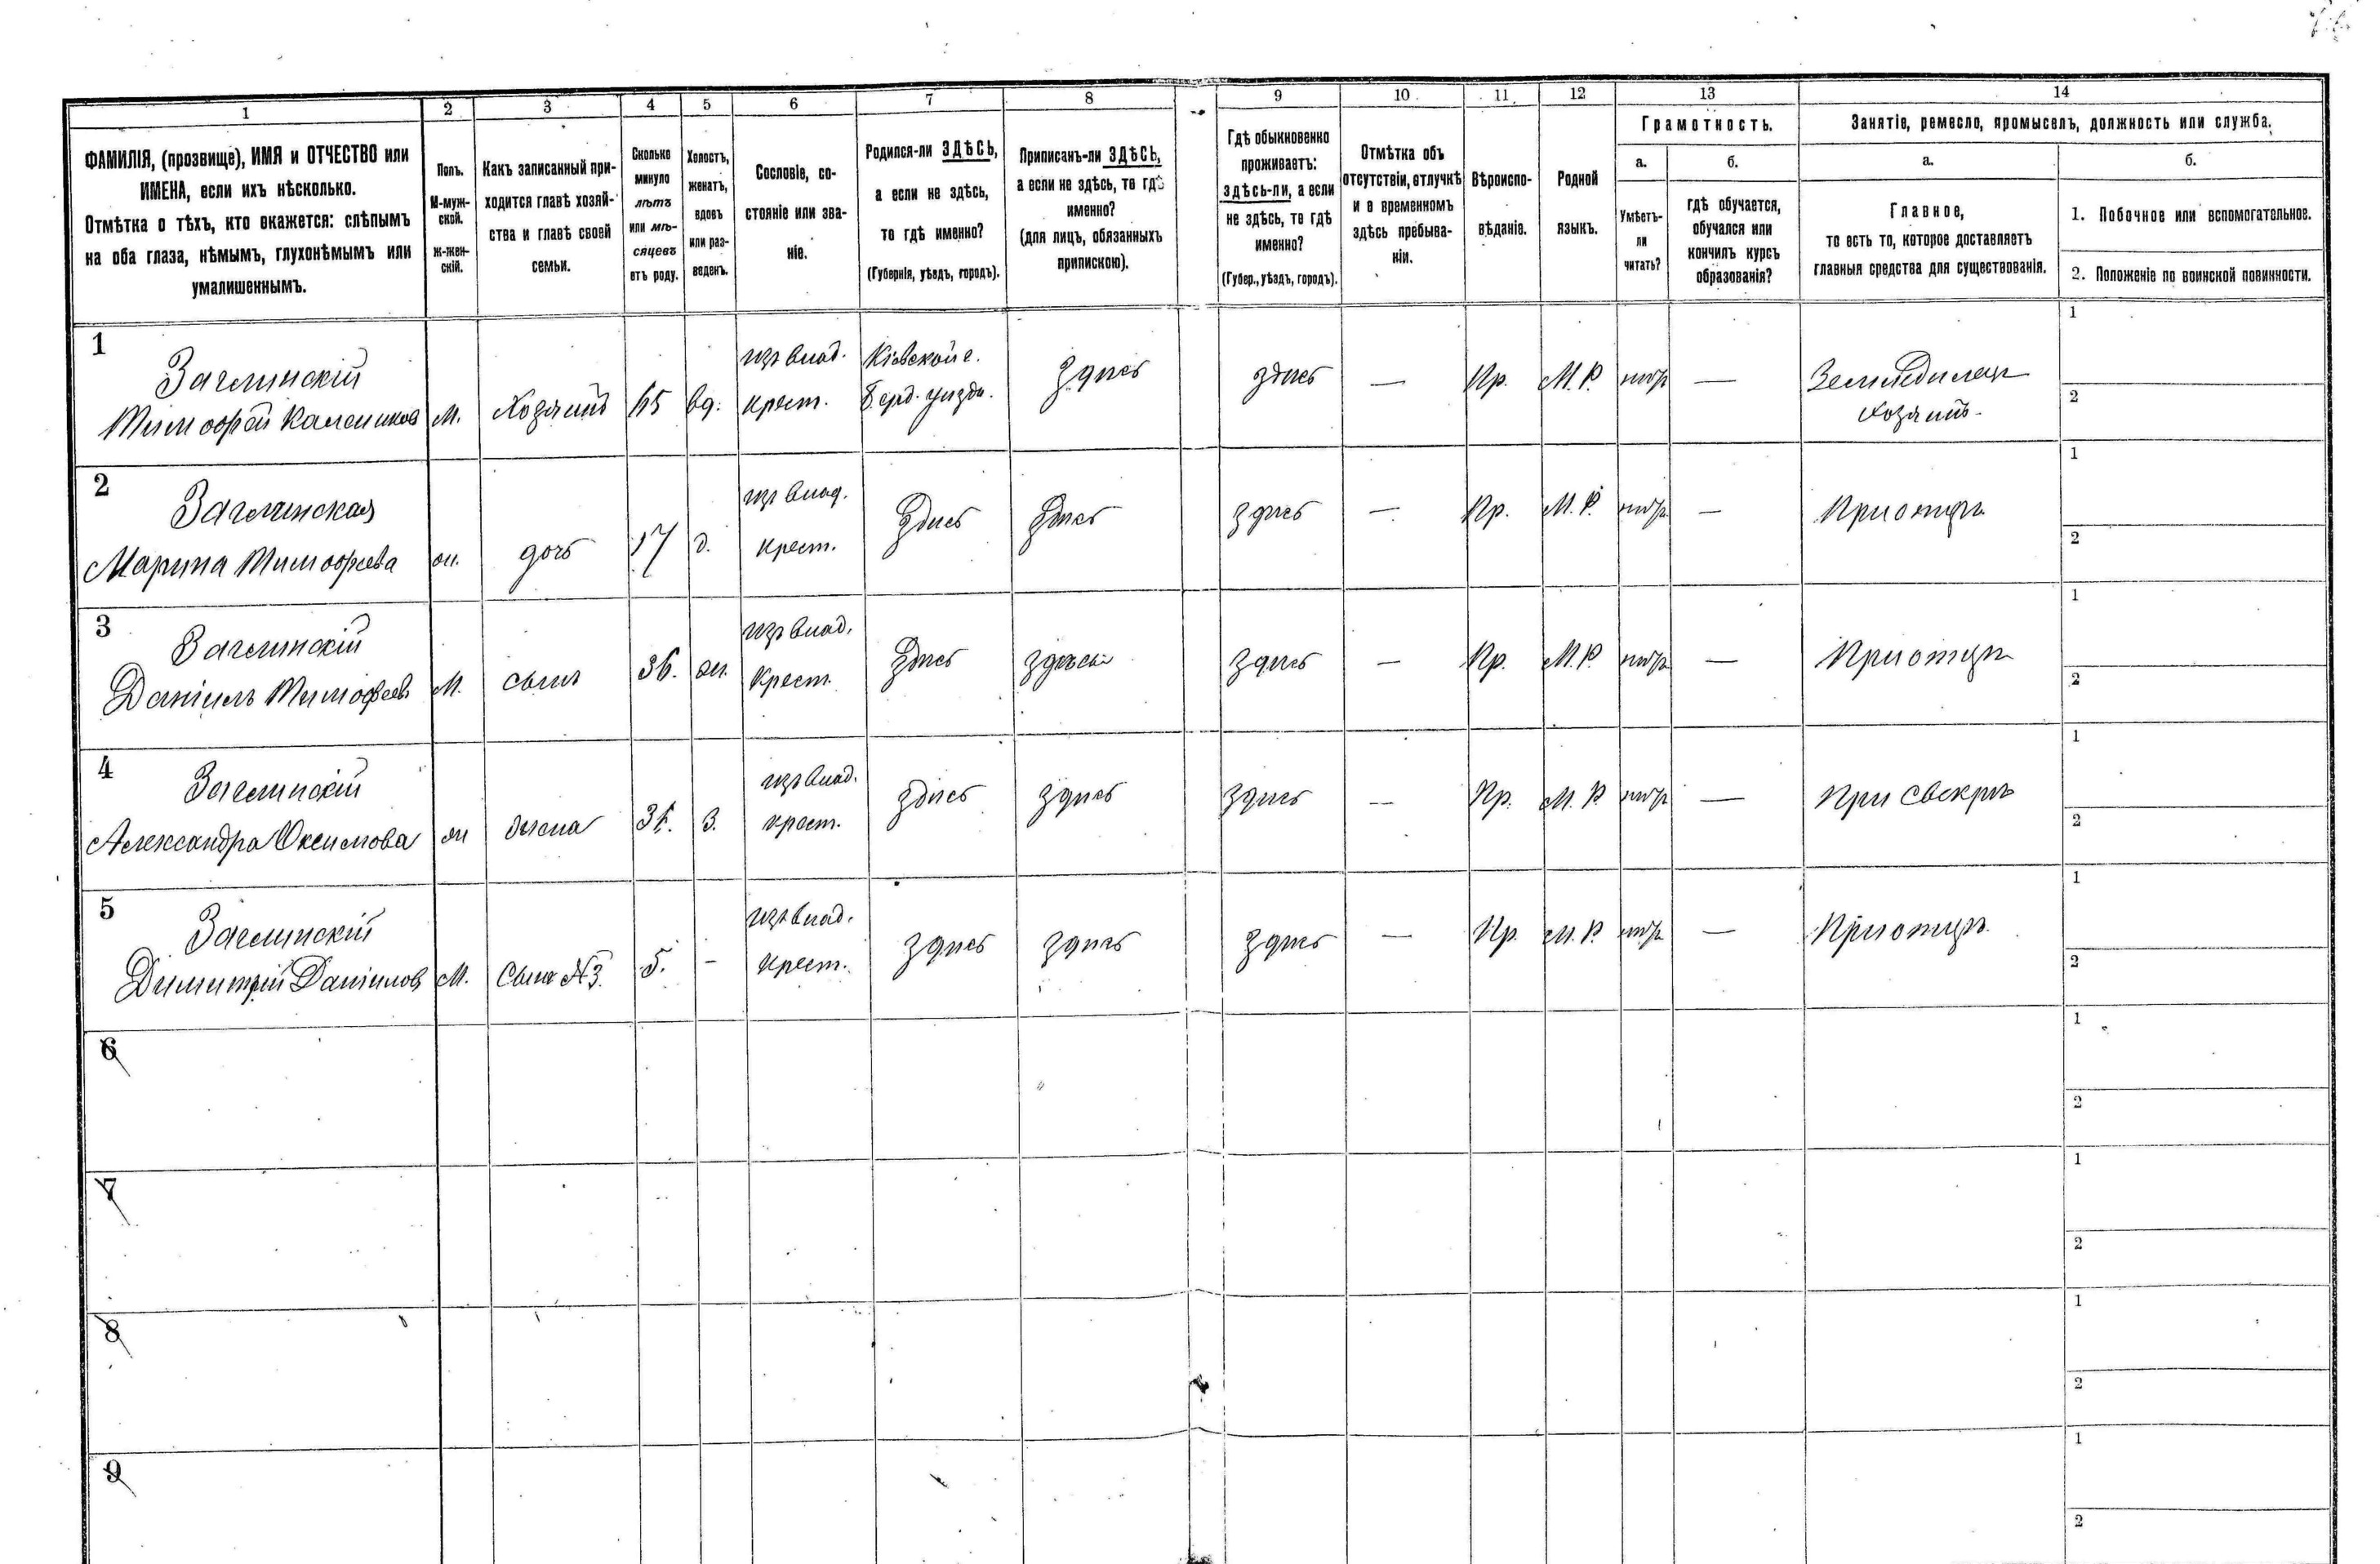 1 2 3 4 5 6 7 8 9 10 11 12 13 14
ФАМИЛІЯ, (прозвище), ИМЯ и ОТЧЕСТВО или
ИМЕНА, если ихъ нѣсколько.
Отмѣтка о тѣхъ, кто окажется: слѣпымъ
на оба глаза, нѣмымъ, глухонѣмымъ или
умалишеннымъ.
Полъ.
М-муж-
ской.
Ж-жен-
скій.
Какъ записанный при-
ходится главѣ хозяй-
ства и главѣ своей
семьи.
Сколько
минуло
лѣтъ
или мѣ-
сяцевъ
отъ роду.
Холостъ,
женатъ,
вдовъ
или раз-
веденъ.
Сословіе, со-
стояніе или зва-
ніе.
Родился-ли ЗДѢСЬ,
а если не здѣсь,
то гдѣ именно?
(Губернія, уѣздъ, городъ).
Приписанъ-ли ЗДѢСЬ,
а если не здѣсь, то гдѣ
именно?
(для лицъ, обязанныхъ
припискою).
Гдѣ обыкновенно
проживаетъ:
здѣсь-ли, а если
не здѣсь, то гдѣ
именно?
(Губер., уѣздъ, городъ).
Отмѣтка объ
отсутствіи, отлучкѣ
и о временномъ
здѣсь пребыва-
ніи.
Вѣроиспо-
вѣданіе.
Родной
языкъ.
Грамотность.
а.
Умѣетъ-
ли
читать?
б.
гдѣ обучается,
обучался или
кончилъ курсъ
образованія?
Занятіе, ремесло, промыселъ, должность или служба.
а.
Главное,
то есть то, которое доставляетъ
главныя средства для существованія.
б.
1. Побочное или вспомогательное.
2. Положеніе по воинской повинности.
1
Тимофей
М.
Хозяинъ
65
вд.
изъ влад.
крест.
Кіевской г.
Берд. уѣзда.
здѣсь
здѣсь
—
Пр.
М. Р.
нѣтъ
—
Земледѣлец
хозяинъ
1
2
2
Марина Тимофеева
ж.
дочь
17
д.
изъ влад.
крест.
здѣсь
здѣсь
здѣсь
—
Пр.
М. Р.
нѣтъ
—
При отцѣ
1
2
3
Даніилъ Тимофеев
М.
сынъ
36.
ж.
изъ влад.
крест.
здѣсь
здѣсь
здѣсь
—
Пр.
М. Р.
нѣтъ
—
При отцѣ
1
2
4
Александра
ж
жена
З.
изъ влад.
крест.
здѣсь
здѣсь
здѣсь
—
Пр.
М. Р.
нѣтъ
—
при свекрѣ
1
2
5
Димитрій Данилов
М.
Сынъ №3
5.
-
изъ влад.
крест.
здѣсь
здѣсь
здѣсь
—
Пр.
М. Р.
нѣтъ
—
При отцѣ
1
2
6
1
2
7
1
2
8
1
2
9
1
2